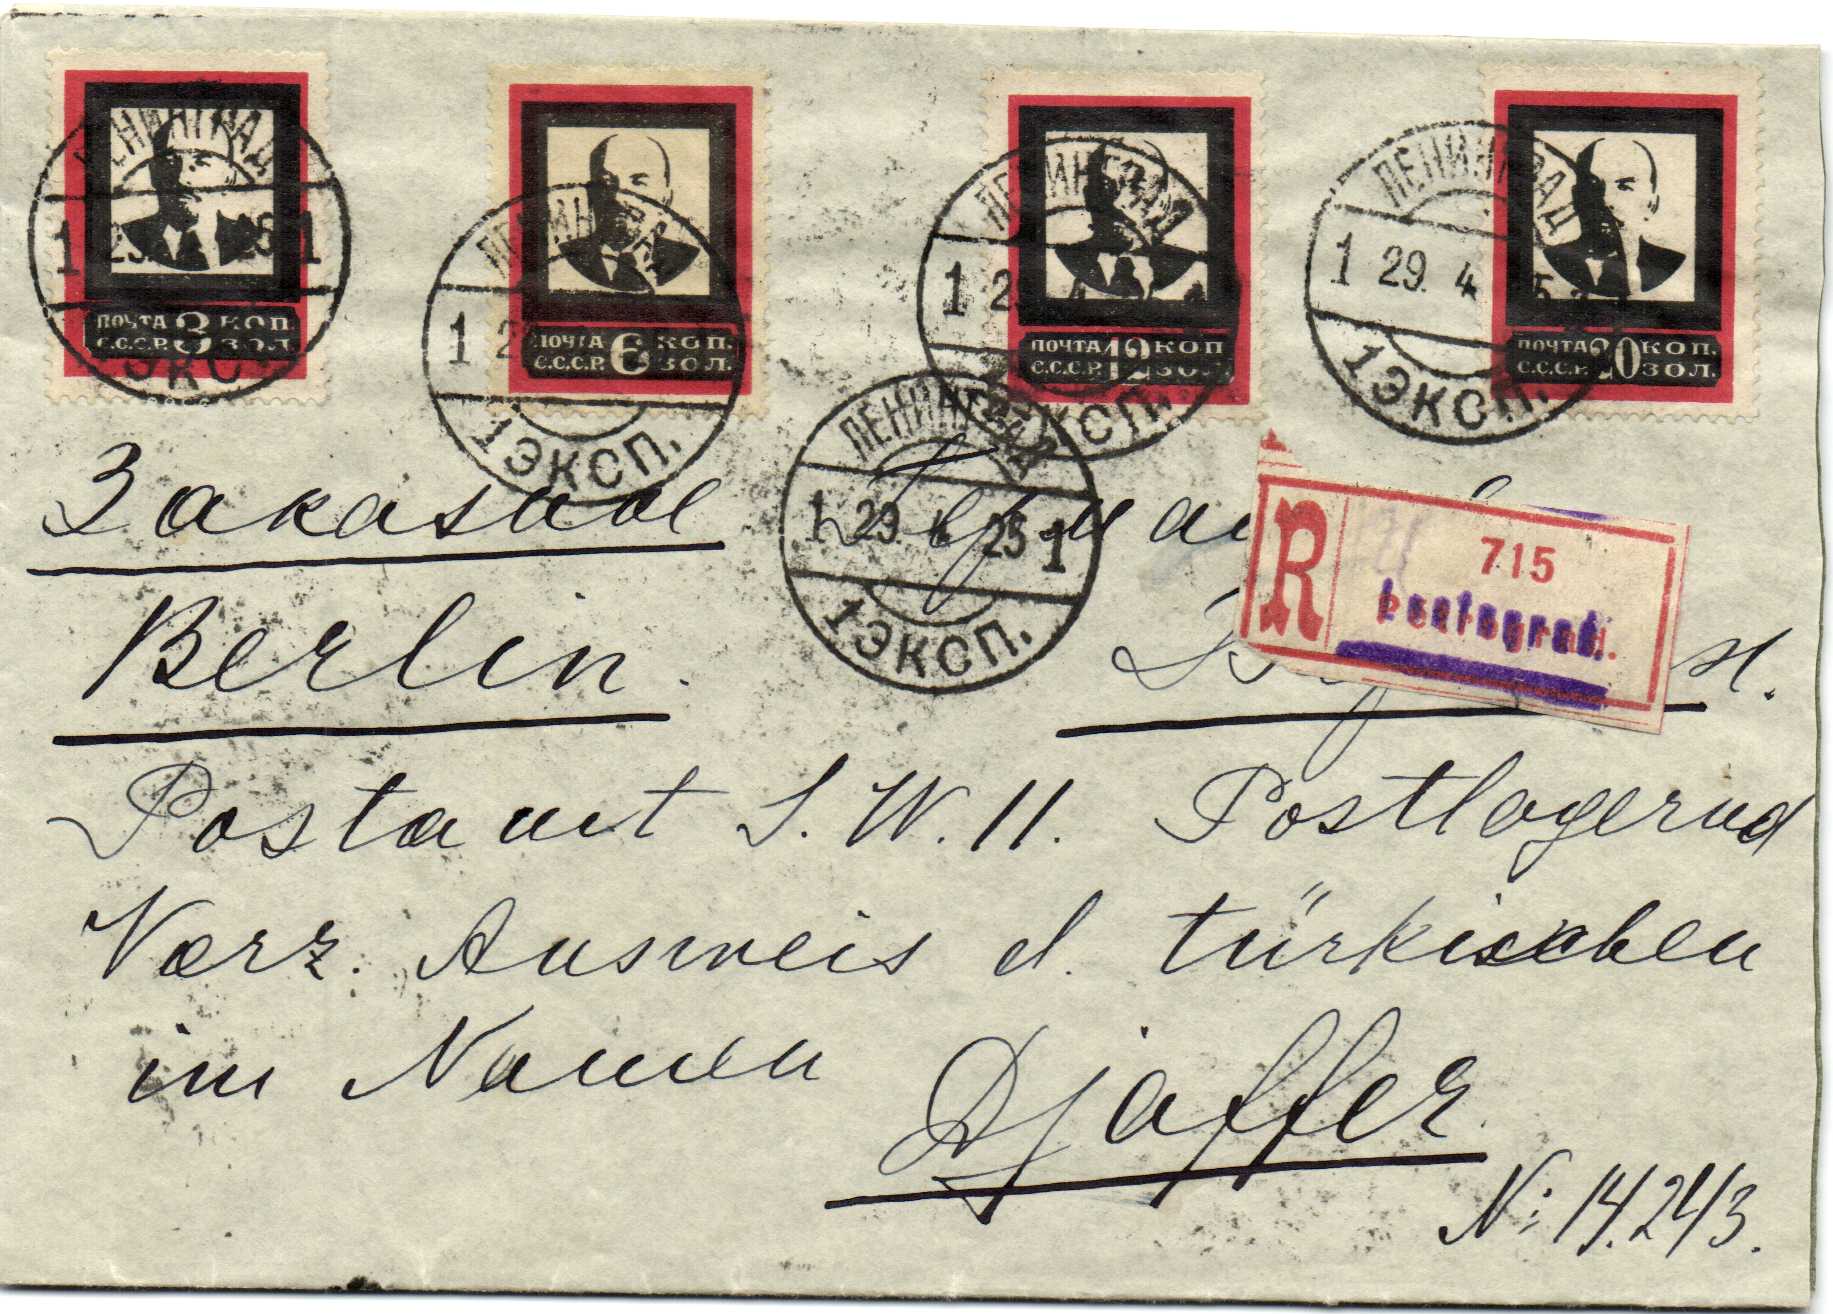 ПОЧТА 3 КОП.
С.С.С.Р. ЗОЛ.
ПОЧТА 6 КОП.
С.С.С.Р. ЗОЛ.
ПОЧТА 12 КОП
С.С.С.Р. ЗОЛ.
ПОЧТА 20 КОП.
С.С.С.Р. ЗОЛ.
ЛЕНИНГРАД
1 29. 25 1
ЭКСП.
ЛЕНИНГРАД
1 2
1 ЭКСП.
ЛЕНИНГРАД
1 2 4
ЭКСП.
ЛЕНИНГРАД
1 29. 4 5
1 ЭКСП.
ЛЕНИНГРАД
1 29. 4 25 1
1 ЭКСП.
Заказное
R 715
Petrograd.
Berlin.
Postamt S. W. 11. Postlagernd
Vorz. Ausweis d. türkischen
im Namen Djaffer.
N: 14.243.